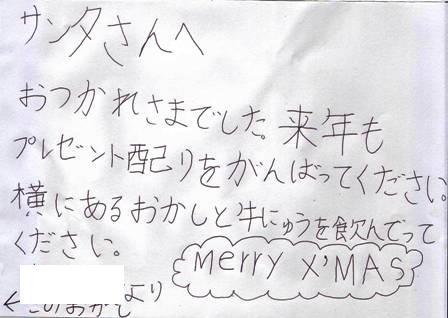 サンタさんへ
おつかれさまでした。来年も
プレゼント配りをがんばってください。
横にあるおかしと牛にゅうを飲んでって
ください。
merry X'MAS
より
←このおかし